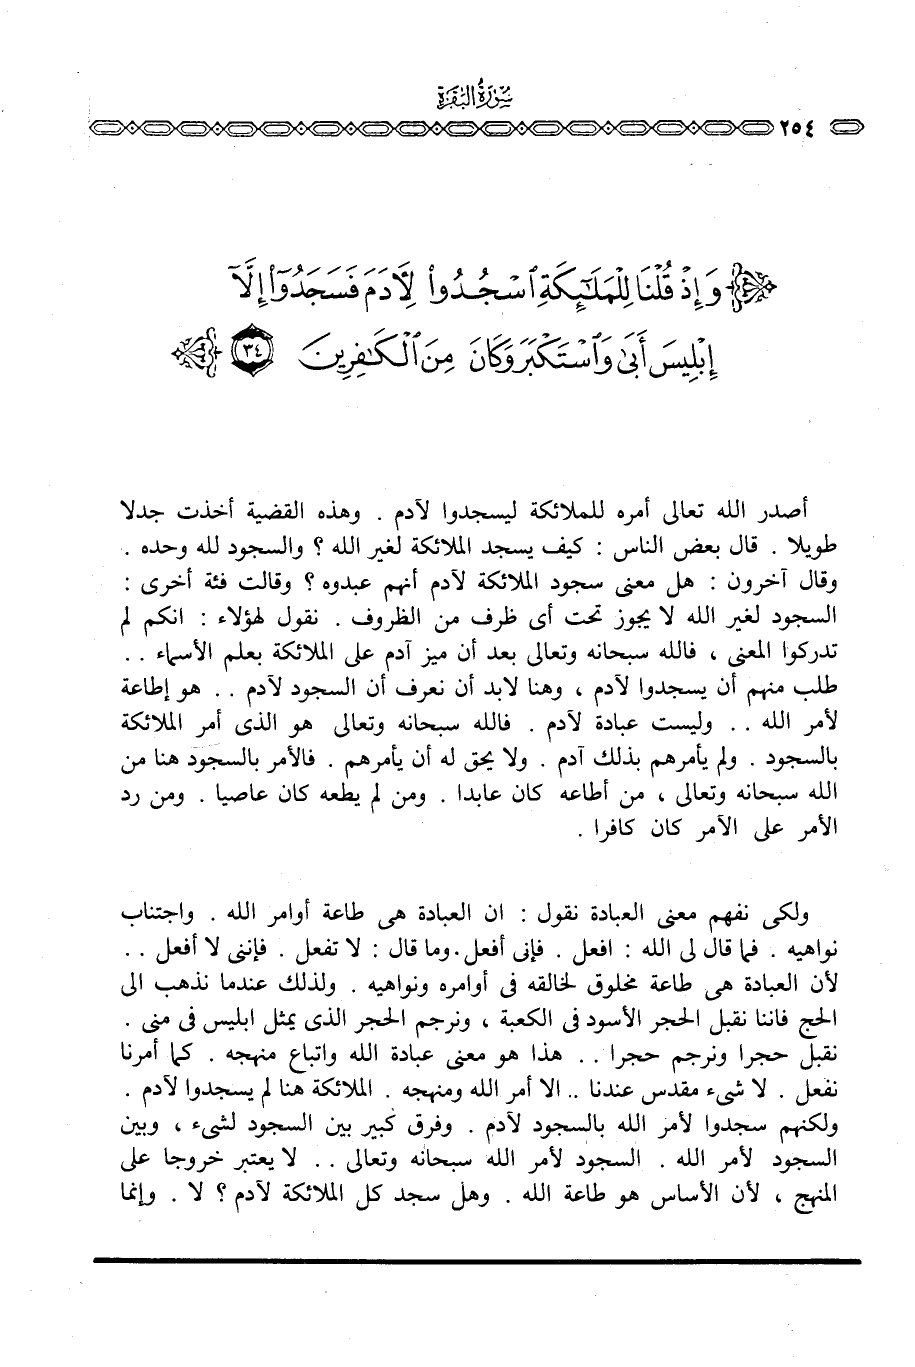 سورة البقرة
٢٥٤
وَإِذْ قُلْنَا لِلْمَلَٰٓئِكَةِ ٱسْجُدُوا۟ لِأَدَمَ فَسَجَدُوٓا۟ إِلَّآ
إِبْلِيسَ أَبَىٰ وَٱسْتَكْبَرَ وَكَانَ مِنَ ٱلْكَٰفِرِينَ ٣٤
أصدر الله تعالى أمره للملائكة ليسجدوا لآدم . وهذه القضية أخذت جدلا
طويلا . قال بعض الناس : كيف يسجد الملائكة لغير الله ؟ والسجود لله وحده .
وقال آخرون : هل معنى سجود الملائكة لآدم أنهم عبدوه ؟ وقالت فئة أخرى :
السجود لغير الله لا يجوز تحت أى ظرف من الظروف . نقول لهؤلاء : انكم لم
تدركوا المعنى ، فالله سبحانه وتعالى بعد أن ميز آدم على الملائكة بعلم الأسماء ..
طلب منهم أن يسجدوا لآدم ، وهنا لابد أن نعرف أن السجود لآدم .. هو إطاعة
لأمر الله .. وليست عبادة لآدم . فالله سبحانه وتعالى هو الذى أمر الملائكة
بالسجود . ولم يأمرهم بذلك آدم . ولا يحق له أن يأمرهم . فالأمر بالسجود هنا من
الله سبحانه وتعالى ، من أطاعه كان عابدا . ومن لم يطعه كان عاصيا . ومن رد
الأمر على الآمر كان كافرا .
ولكى نفهم معنى العبادة نقول : ان العبادة هى طاعة أوامر الله . واجتناب
نواهيه . فما قال لى الله : افعل . فإنى أفعل . وما قال : لا تفعل . فإننى لا أفعل ..
لأن العبادة هى طاعة مخلوق لخالقه فى أوامره ونواهيه . ولذلك عندما نذهب الى
الحج فاننا نقبل الحجر الأسود فى الكعبة ، ونرجم الحجر الذى يمثل ابليس فى منى .
نقبل حجرا ونرجم حجرا .. هذا هو معنى عبادة الله واتباع منهجه . كما أمرنا
نفعل . لا شىء مقدس عندنا .. الا أمر الله ومنهجه . الملائكة هنا لم يسجدوا لآدم .
ولكنهم سجدوا لأمر الله بالسجود لآدم . وفرق كبير بين السجود لشىء ، وبين
السجود لأمر الله . السجود لأمر الله سبحانه وتعالى .. لا يعتبر خروجا على
المنهج ، لأن الأساس هو طاعة الله . وهل سجد كل الملائكة لآدم ؟ لا . وإنما